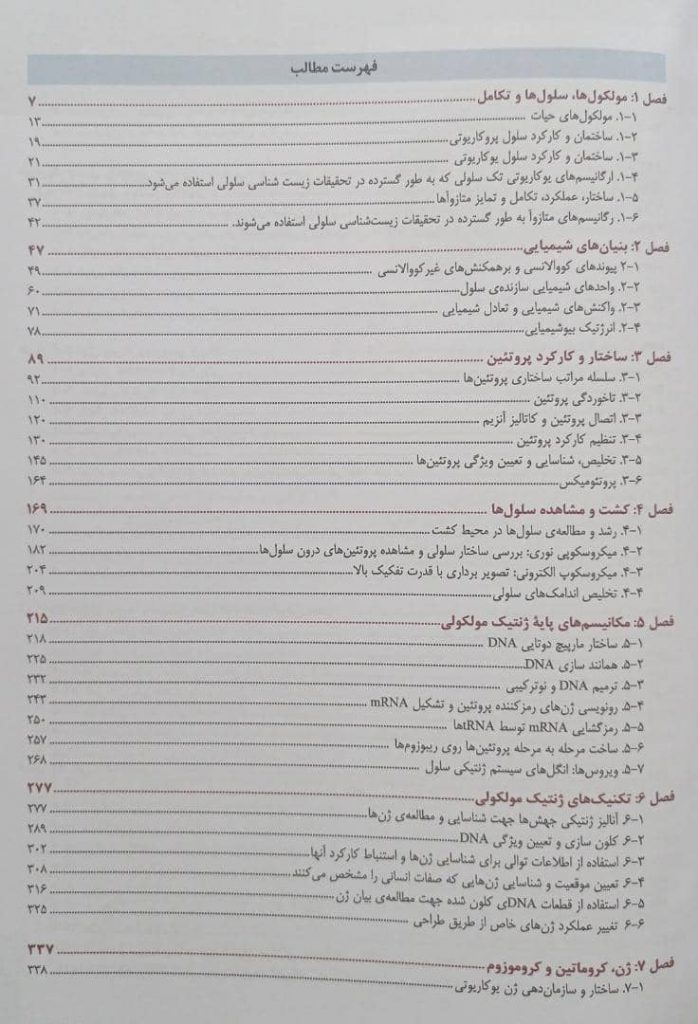 فهرست مطالب
فصل ۱: مولکول‌ها، سلول‌ها و تکامل ۷
۱-۱. مولکول‌های حیات ۱۳
۱-۲. ساختمان و کارکرد سلول پروکاریوتی ۱۹
۱-۳. ساختمان و کارکرد سلول یوکاریوتی ۲۱
۱-۴. ارگانیسم‌های یوکاریوتی تک سلولی که به طور گسترده در تحقیقات زیست شناسی سلولی استفاده می‌شود. ۳۱
۱-۵. ساختار، عملکرد، تکامل و تمایز متازوآها ۳۷
۱-۶. رگانیسم‌های متازوآ به طور گسترده در تحقیقات زیست‌شناسی سلولی استفاده می‌شوند. ۴۲
فصل ۲: بنیان‌های شیمیایی ۴۷
۲-۱ پیوندهای کووالانسی و برهمکنش‌های غیرکووالانسی ۴۹
۲-۲. واحدهای شیمیایی سازنده‌ی سلول ۶۰
۲-۳. واکنش‌های شیمیایی و تعادل شیمیایی ۷۱
۲-۴. انرژتیک بیوشیمیایی ۷۸
فصل ۳: ساختار و کارکرد پروتئین ۸۹
۳-۱. سلسله مراتب ساختاری پروتئین‌ها ۹۲
۳-۲. تاخوردگی پروتئین ۱۱۰
۳-۳. اتصال پروتئین و کاتالیز آنزیم ۱۲۰
۳-۴. تنظیم کارکرد پروتئین ۱۳۰
۳-۵. تخلیص، شناسایی و تعیین ویژگی پروتئین‌ها ۱۴۵
۳-۶. پروتئومیکس ۱۶۴
فصل ۴: کشت و مشاهده سلول‌ها ۱۶۹
۴-۱. رشد و مطالعه‌ی سلول‌ها در محیط کشت ۱۷۰
۴-۲. میکروسکوپی نوری: بررسی ساختار سلولی و مشاهده پروتئین‌های درون سلول‌ها ۱۸۲
۴-۳. میکروسکوپ الکترونی؛ تصویر برداری با قدرت تفکیک بالا ۲۰۴
۴-۴. تخلیص اندامک‌های سلولی ۲۰۹
فصل ۵: مکانیسم‌های پایهٔ ژنتیک مولکولی ۲۱۵
۵-۱. ساختار مارپیچ دوتایی DNA ۲۱۸
۵-۲. همانند سازی DNA ۲۲۵
۵-۳. ترمیم DNA و نوترکیبی ۲۳۲
۵-۴. رونویسی ژن‌های رمزکننده پروتئین و تشکیل mRNA ۲۴۳
۵-۵. رمزگشایی mRNA توسط tRNAها ۲۵۰
۵-۶. ساخت مرحله به مرحله پروتئین‌ها روی ریبوزوم‌ها ۲۵۷
۵-۷. ویروس‌ها: انگل‌های سیستم ژنتیکی سلول ۲۶۸
فصل ۶: تکنیک‌های ژنتیک مولکولی ۲۷۷
۶-۱. آنالیز ژنتیکی جهش‌ها جهت شناسایی و مطالعه‌ی ژن‌ها ۲۷۷
۶-۲. کلون سازی و تعیین ویژگی DNA ۲۸۹
۶-۳. استفاده از اطلاعات توالی برای شناسایی ژن‌ها و استنباط کارکرد آنها ۳۰۲
۶-۴. تعیین موقعیت و شناسایی ژن‌هایی که صفات انسانی را مشخص می‌کنند ۳۰۸
۶-۵. استفاده از قطعات DNAی کلون شده جهت مطالعه‌ی بیان ژن ۳۱۶
۶-۶. تغییر عملکرد ژن‌های خاص از طریق طراحی ۳۲۵
فصل ۷: ژن، کروماتین و کروموزوم ۳۳۷
۷-۱. ساختار و سازمان‌دهی ژن یوکاریوتی ۳۳۸